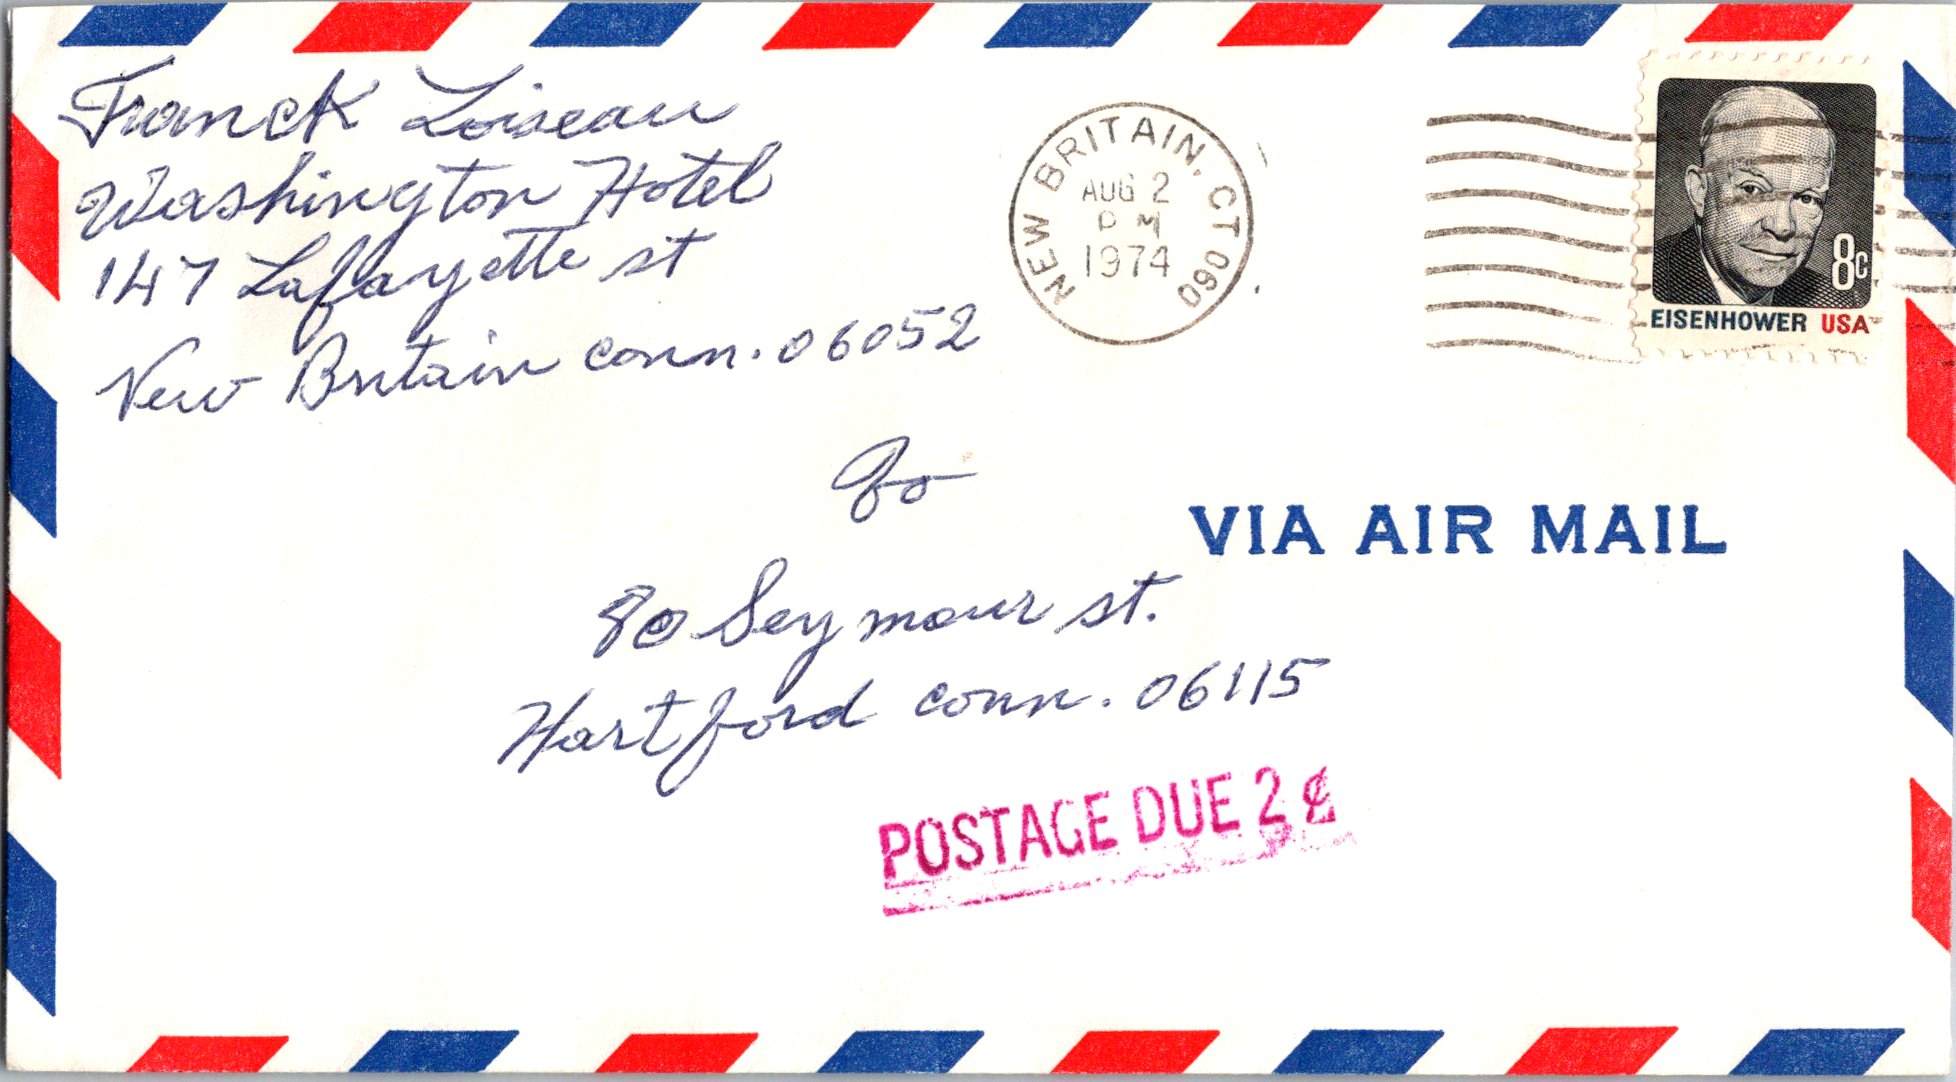 Franck Loiseau
Washington Hotel
147 Lafayette st
New Britain conn. 06052
NEW BRITAIN, CT 060
AUG 2
PM
1974
8c
EISENHOWER USA
To
VIA AIR MAIL
80 Seymour st.
Hartford conn. 06115
POSTAGE DUE 2 ¢